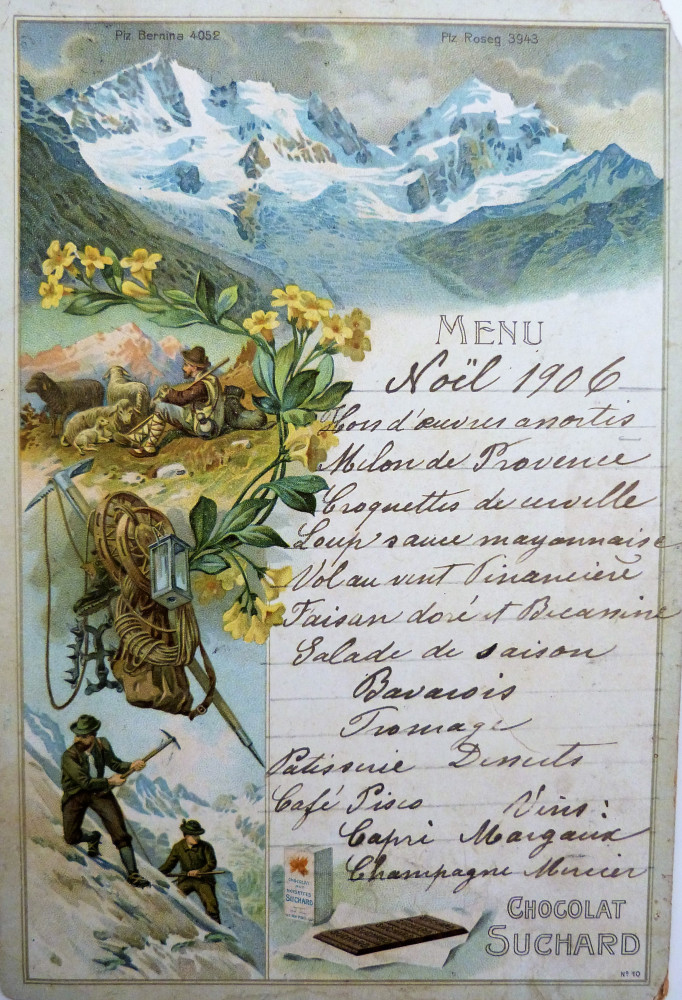 Piz Bernina 4052
Piz Roseg 3943
MENU
Noël 1906
Hors d'œuvres assortis
Melon de Provence
Croquettes de cervelle
Loup sauce mayonnaise
Vol au vent Financière
Faisan doré et Becassine
Salade de saison
Bavarois
Fromage
Patisserie Desserts
Café Pisco Vins:
Capri Margaux
Champagne Mercier
CHOCOLAT
NOISETTES
SUCHARD
CHOCOLAT
SUCHARD
Nº 10